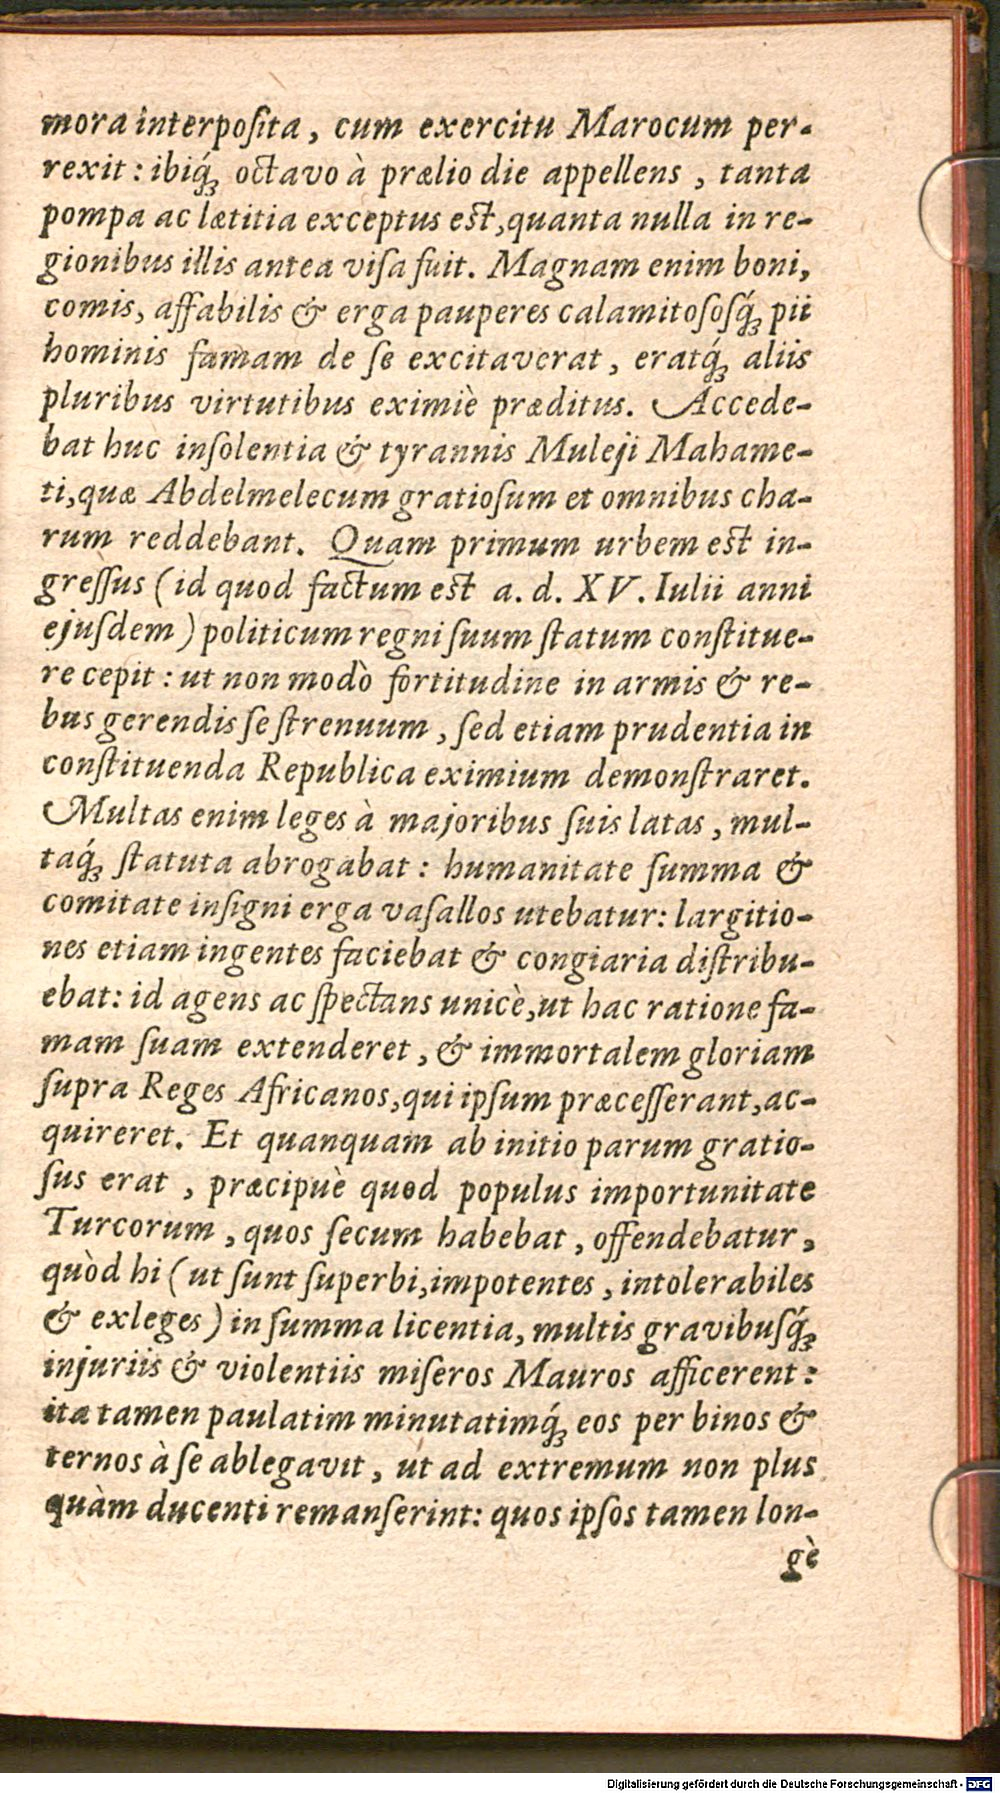 mora interpoſita, cum exercitu Marocum per-
rexit: ibiq́ꝫ octavo à prælio die appellens, tanta
pompa ac lætitia exceptus eſt, quanta nulla in re-
gionibus illis antea viſa fuit. Magnam enim boni,
comis, affabilis & erga pauperes calamitoſoſq́ꝫ pii
hominis famam de ſe excitaverat, eratq́ꝫ aliis
pluribus virtutibus eximiè præditus. Accede-
bat huc inſolentia & tyrannis Muleji Mahame-
ti, quæ Abdelmelecum gratioſum et omnibus cha-
rum reddebant. Quam primum urbem eſt in-
greſſus (id quod factum eſt a. d. XV. Iulii anni
ejuſdem) politicum regni ſuum ſtatum conſtitue-
re cepit: ut non modò fortitudine in armis & re-
bus gerendis ſe ſtrenuum, ſed etiam prudentia in
conſtituenda Republica eximium demonſtraret.
Multas enim leges à majoribus ſuis latas, mul-
taq́ꝫ ſtatuta abrogabat: humanitate ſumma &
comitate inſigni erga vaſallos utebatur: largitio-
nes etiam ingentes faciebat & congiaria diſtribu-
ebat: id agens ac ſpectans unicè, ut hac ratione fa-
mam ſuam extenderet, & immortalem gloriam
ſupra Reges Africanos, qui ipſum præceſſerant, ac-
quireret. Et quanquam ab initio parum gratio-
ſus erat, præcipuè quod populus importunitate
Turcorum, quos ſecum habebat, offendebatur,
quòd hi (ut ſunt ſuperbi, impotentes, intolerabiles
& exleges) in ſumma licentia, multis gravibuſq́ꝫ
injuriis & violentiis miſeros Mauros afficerent:
ita tamen paulatim minutatimq́ꝫ eos per binos &
ternos à ſe ablegavit, ut ad extremum non plus
quàm ducenti remanſerint: quos ipſos tamen lon-
gè
Digitalisierung gefördert durch die Deutsche Forschungsgemeinschaft - DFG